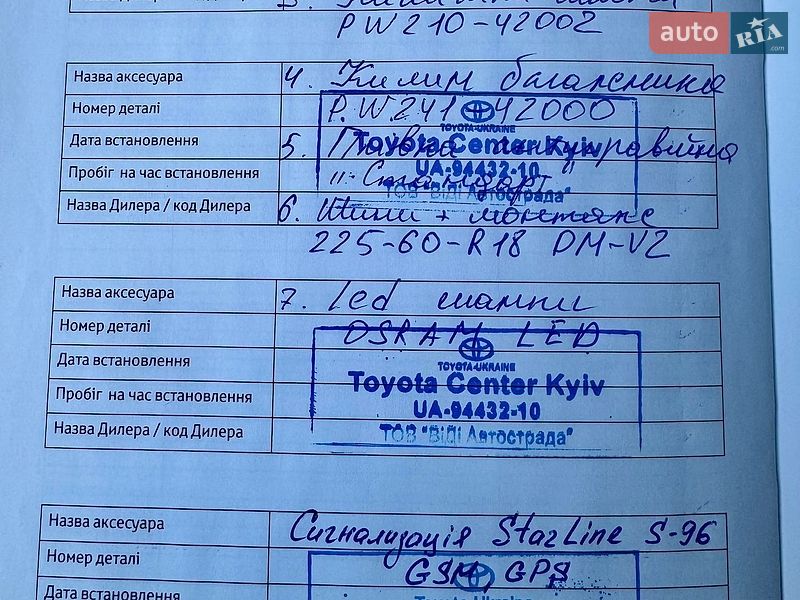 PW210-42002
auto RIA .com
Назва аксесуара 4. Килим багажника
Номер деталі P.W.241-42000
TOYOTA-UKRAINE
Дата встановлення 5. Плівка антигравійна
Toyota Center Kyiv
UA-94432-10
Пробіг на час встановлення "Стандарт"
ТОВ "ВіДі Автострада"
Назва Дилера / код Дилера 6. Шини + монтаж
225-60-R18 DM-V2
Назва аксесуара 7. Led лампи
Номер деталі OSRAM LED
TOYOTA-UKRAINE
Дата встановлення
Toyota Center Kyiv
Пробіг на час встановлення
UA-94432-10
Назва Дилера / код Дилера
ТОВ "ВіДі Автострада"
Назва аксесуара Сигналізація StarLine S-96
Номер деталі GSM, GPS
Дата встановлення
Toyota Ukraine